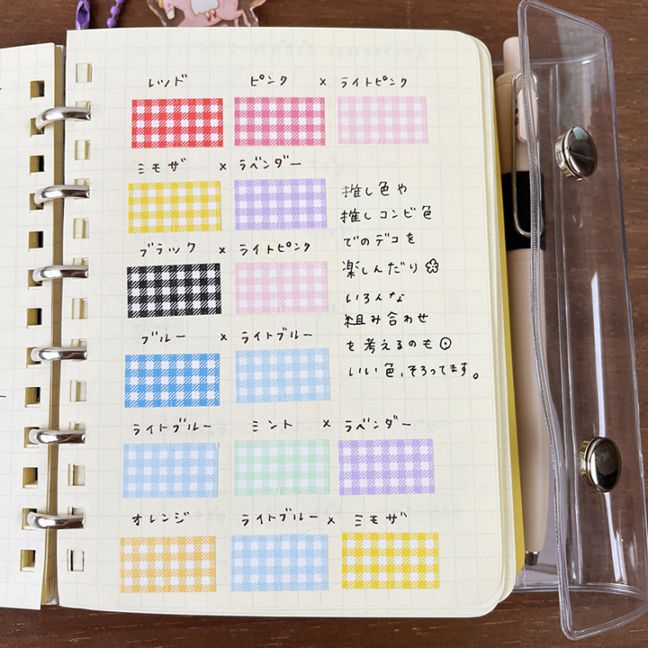 レッド ピンク × ライトピンク
ミモザ × ラベンダー
ブラック × ライトピンク
ブルー × ライトブルー
ライトブルー ミント × ラベンダー
オレンジ ライトブルー × ミモザ
推し色や
推しコンビ色
でのデコを
楽しんだり
いろんな
組み合わせ
を考えるのも◎
いい色、そろってます。